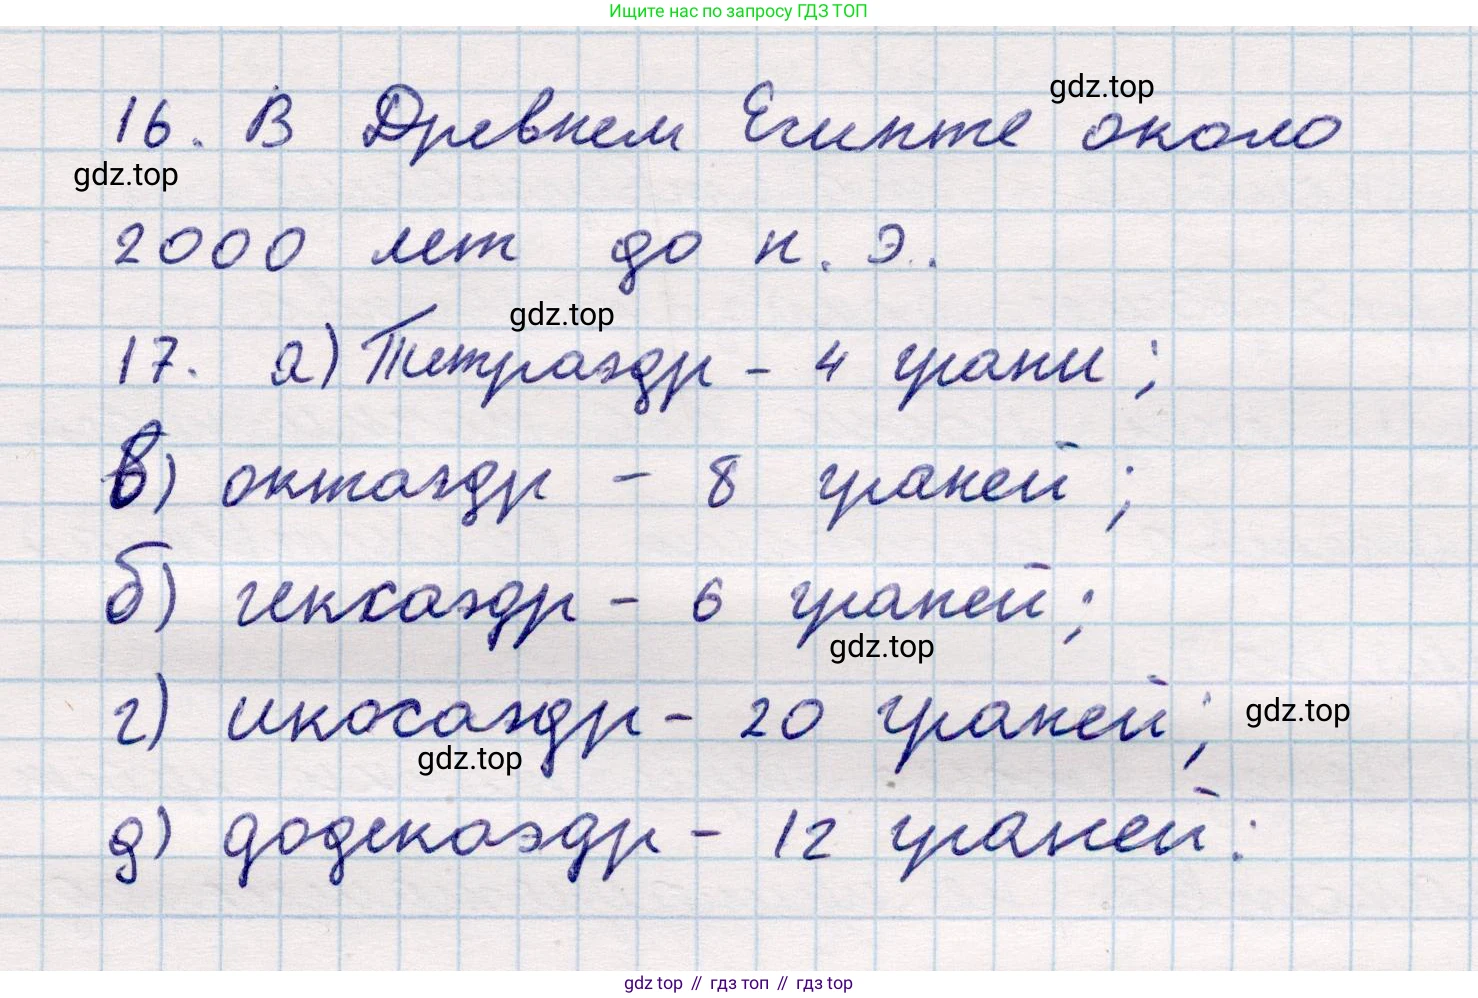 Ищите нас по запросу ГДЗ ТОП
gdz.top
16. В Древнем Египте около
gdz.top
2000 лет до н. э.
gdz.top
17. а) Тетраэдр - 4 грани;
в) октаэдр - 8 граней;
б) гексаэдр - 6 граней;
gdz.top
г) икосаэдр - 20 граней;
gdz.top
gdz.top
д) додекаэдр - 12 граней.
gdz top // гдз топ // гдз top